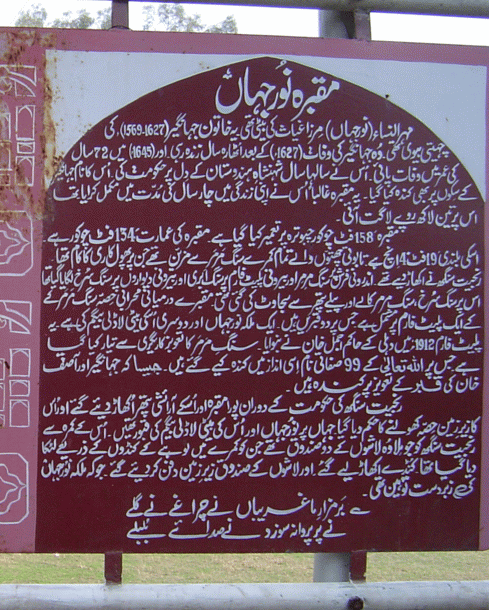 مقبرہ نُور جہاں
مہر النساء (نور جہاں) مرزا غیاث کی بیٹی تھی یہ خاتون جہانگیر (1627-1569) کی
چہیتی بیوی تھی۔ وہ جہانگیر کی وفات (1627ء) کے بعد اٹھارہ سال زندہ رہی اور (1645) میں 72 سال
کی عمر میں وفات پائی۔ اُس نے سالہا سال شہنشاہ ہندوستان کے دل پر حکومت کی۔ اس کا نام
کے سکوں پر بھی کندہ کیا گیا۔ یہ مقبرہ غالباً اُس نے اپنی زندگی میں چار سال کی مُدت میں مکمل کرلیا تھا
اس پر تین لاکھ روپے لاگت آئی۔
مقبرہ 158 فٹ چوکور چبوترہ پر تعمیر کیا گیا ہے۔ مقبرہ کی عمارت 134 فٹ چوکور ہے
اسکی بلندی 19 فٹ 4 انچ ہے۔ تابوتی چھتوں والے تمام کمرے سنگِ مرمر سے مزین تھے جن پر پھول کاری کا کام تھا۔
رنجیت سنگھ نے اکھاڑ دیئے تھے۔ اندرونی فرش سنگِ مرمر اور بیرونی پلیٹ فارم پر سنگِ ابری اور بیرونی دیواروں پر سنگِ سُرخ لگایا گیا تھا
اس پر سنگِ سُرخ، سنگِ مرمر کالے اور پیلے پتھر سے سجاوٹ کی گئی تھی۔ مقبرے کے درمیانی محرابی حصہ سنگِ مرمر کے
کے ایک پلیٹ فارم پر مشتمل ہے جس پر دو قبریں ہیں۔ ایک ملکہ نور جہاں اور دوسری اُسکی بیٹی لاڈلی بیگم کی ہے۔ یہ
پلیٹ فارم 1912ء میں دہلی کے حاکم اجمل خان نے بنوایا۔ سنگِ مرمر کا تعویز کاریگری سے تیار کیا گیا
ہے جس پر اللہ تعالٰی کے 99 صفاتی نام اسی انداز میں کندہ کیے گئے ہیں۔ جیسا کہ جہانگیر اور آصف
خان کی قبر کے تعویز پر کندہ ہیں۔
رنجیت سنگھ کی حکومت کے دوران پورا مقبرہ اور اسکے آرائشی پتھر اُکھاڑ دیئے گئے اور اُس
کا زیرِ زمین حصّہ کھولنے کا حکم دیا گیا جہاں پر نُور جہاں اور اُس کی بیٹی لاڈلی بیگم کی قبریں تھیں۔ اُس کمرہ سے
رنجیت سنگھ کو جو ملا وہ لاشوں کے دو صندوق تھے جن کو کمرے میں لوہے کے کنڈوں کے ذریعے لٹکا
دیا گیا تھا کنڈے اکھاڑ لیے گئے اور لاشوں کے صندوق زیرِ زمین دفن کر دیئے گئے جو کہ ملکہ نور جہاں
کی زبردست توہین تھی۔
بر مزار ما غریباں نے چراغے نے گلے
نے پرِ پروانہ سوزد نے صدائے بلبلے